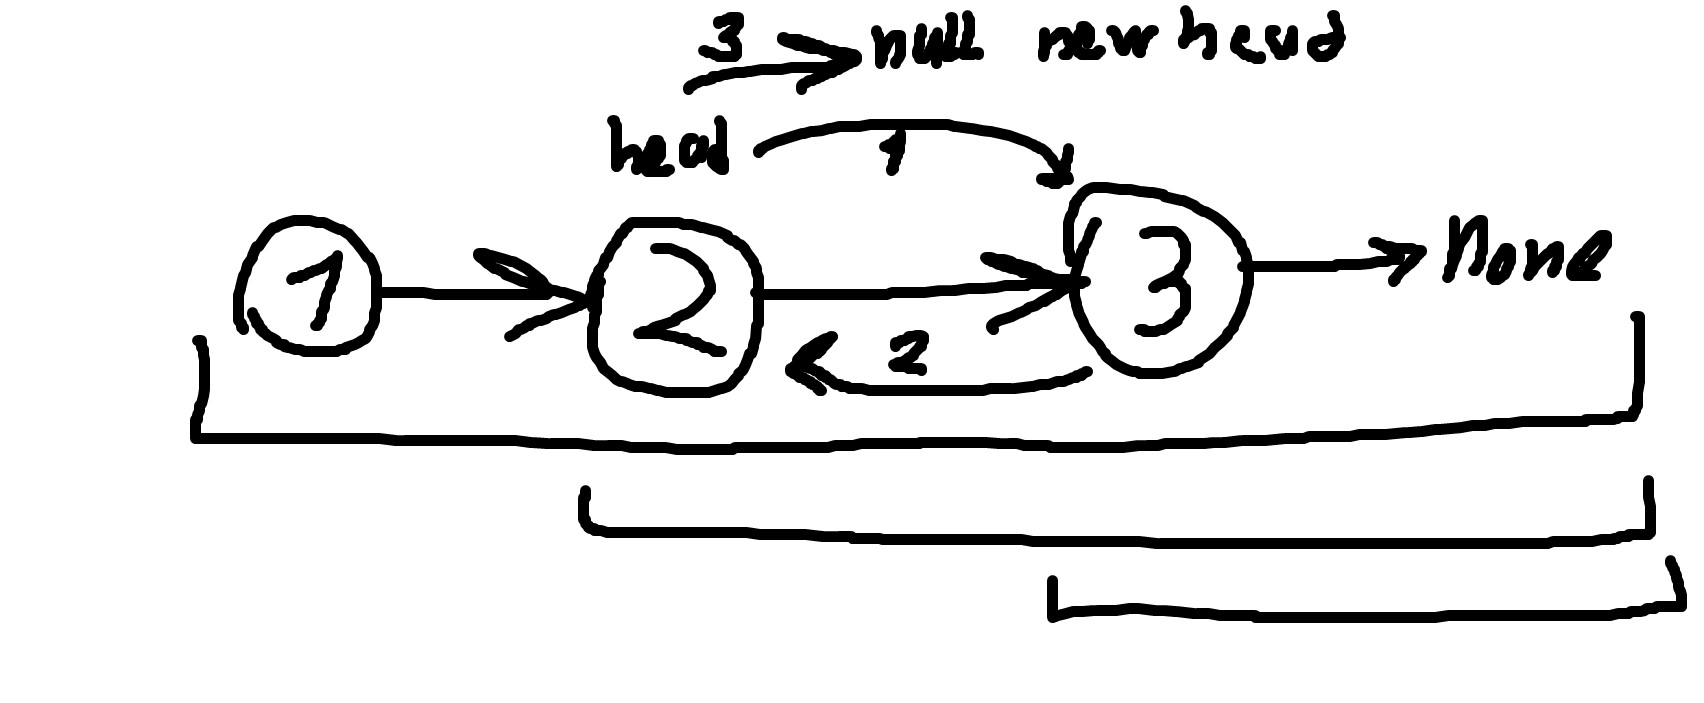 3 null new head
head 1
1 2 3 None
2